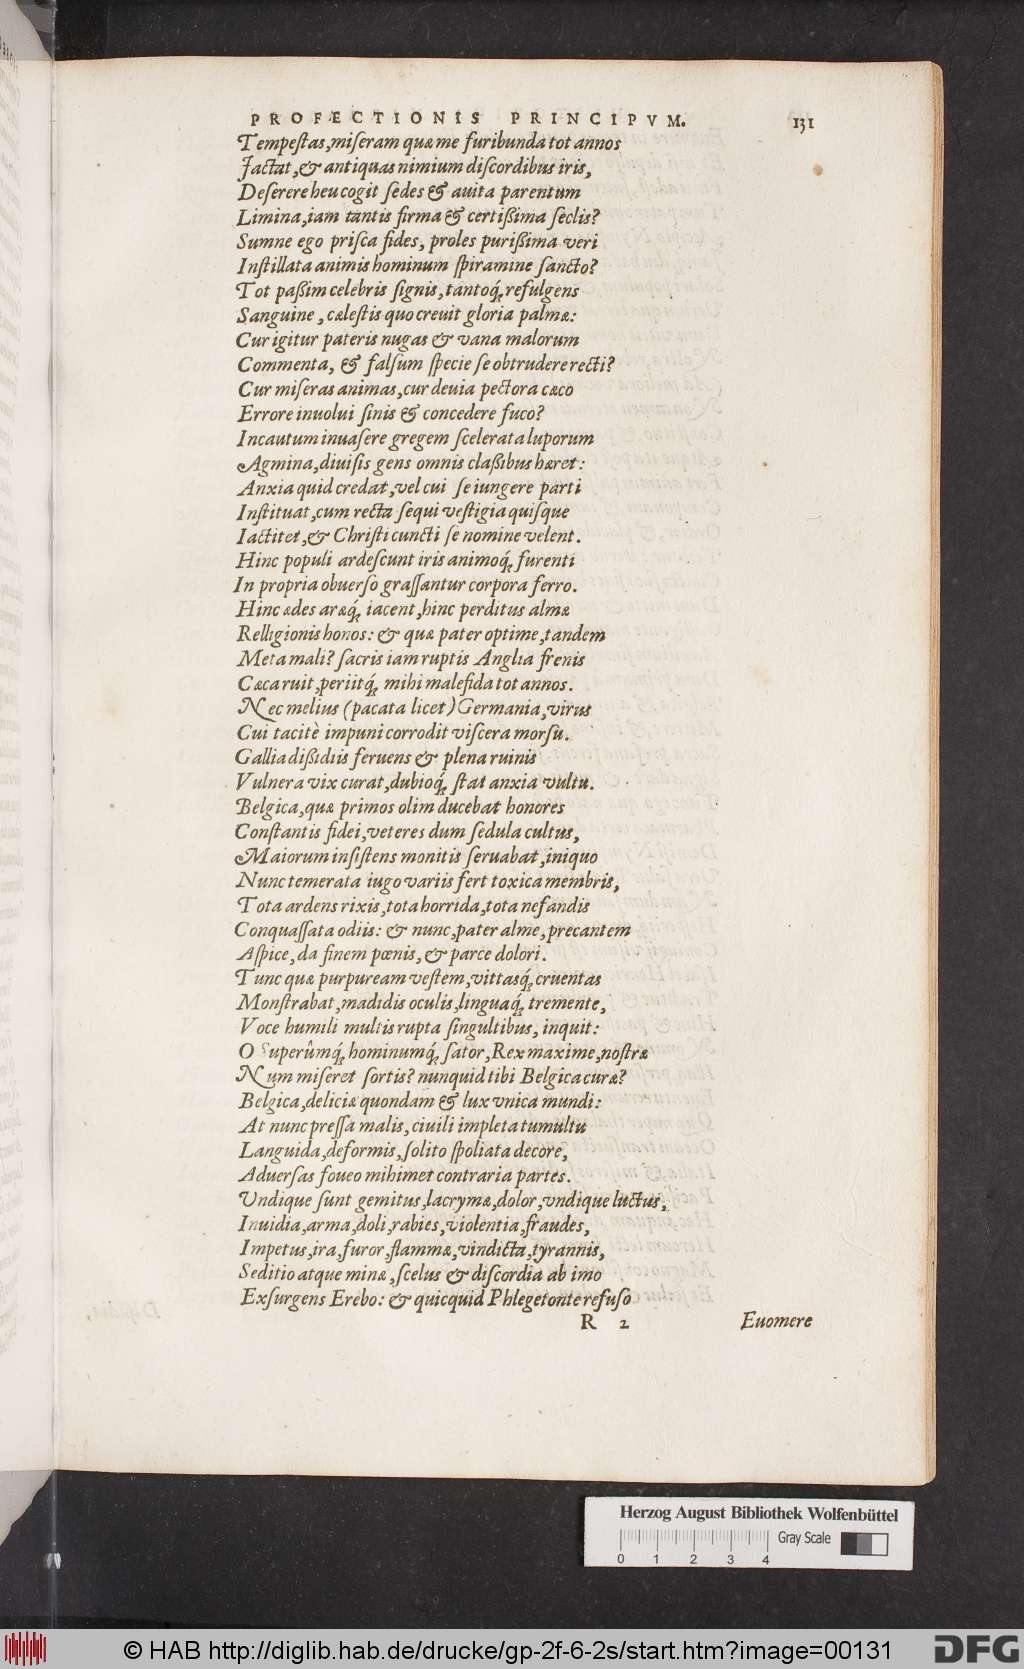 PROFECTIONIS PRINCIPVM. 131
Tempeſtas, miſeram quæ me furibunda tot annos
Jactat, & antiquas nimium diſcordibus iris,
Deſerere heu cogit ſedes & auita parentum
Limina, iam tantis firma & certißima ſeclis?
Sumne ego priſca fides, proles purißima veri
Inſtillata animis hominum ſpiramine ſancto?
Tot paßim celebris ſignis, tantoq́; refulgens
Sanguine, cæleſtis quo creuit gloria palmæ:
Cur igitur pateris nugas & vana malorum
Commenta, & falſum ſpecie ſe obtrudere recti?
Cur miſeras animas, cur deuia pectora cæco
Errore inuolui ſinis & concedere fuco?
Incautum inuaſere gregem ſcelerata luporum
Agmina, diuiſis gens omnis claßibus hæret:
Anxia quid credat, vel cui ſe iungere parti
Inſtituat, cum recta ſequi veſtigia quiſque
Iactitet, & Chriſti cuncti ſe nomine velent.
Hinc populi ardeſcunt iris animoq́; furenti
In propria obuerſo graſſantur corpora ferro.
Hinc ædes aræq́; iacent, hinc perditus almæ
Relligionis honos: & quæ pater optime, tandem
Meta mali? ſacris iam ruptis Anglia frenis
Cæca ruit, periitq́; mihi malefida tot annos.
Nec melius (pacata licet) Germania, virus
Cui tacitè impuni corrodit viſcera morſu.
Gallia dißidiis feruens & plena ruinis
Vulnera vix curat, dubioq́; ſtat anxia vultu.
Belgica, quæ primos olim ducebat honores
Conſtantis fidei, veteres dum ſedula cultus,
Maiorum inſiſtens monitis ſeruabat, iniquo
Nunc temerata iugo variis fert toxica membris,
Tota ardens rixis, tota horrida, tota nefandis
Conquaſſata odiis: & nunc, pater alme, precantem
Aſpice, da finem pœnis, & parce dolori.
Tunc quæ purpuream veſtem, vittasq́; cruentas
Monſtrabat, madidis oculis, linguaq́; tremente,
Voce humili multis rupta ſingultibus, inquit:
O Superûmq́; hominumq́; ſator, Rex maxime, noſtræ
Num miſeret ſortis? nunquid tibi Belgica curæ?
Belgica, deliciæ quondam & lux vnica mundi:
At nunc preſſa malis, ciuili impleta tumultu
Languida, deformis, ſolito ſpoliata decore,
Aduerſas foueo mihimet contraria partes.
Vndique ſunt gemitus, lacrymæ, dolor, vndique luctus,
Inuidia, arma, doli, rabies, violentia, fraudes,
Impetus, ira, furor, flammæ, vindicta, tyrannis,
Seditio atque minæ, ſcelus & diſcordia ab imo
Exſurgens Erebo: & quicquid Phlegetonte refuſo
R 2 Euomere
Herzog August Bibliothek Wolfenbüttel
Gray Scale
0 1 2 3 4
© HAB http://diglib.hab.de/drucke/gp-2f-6-2s/start.htm?image=00131
DFG